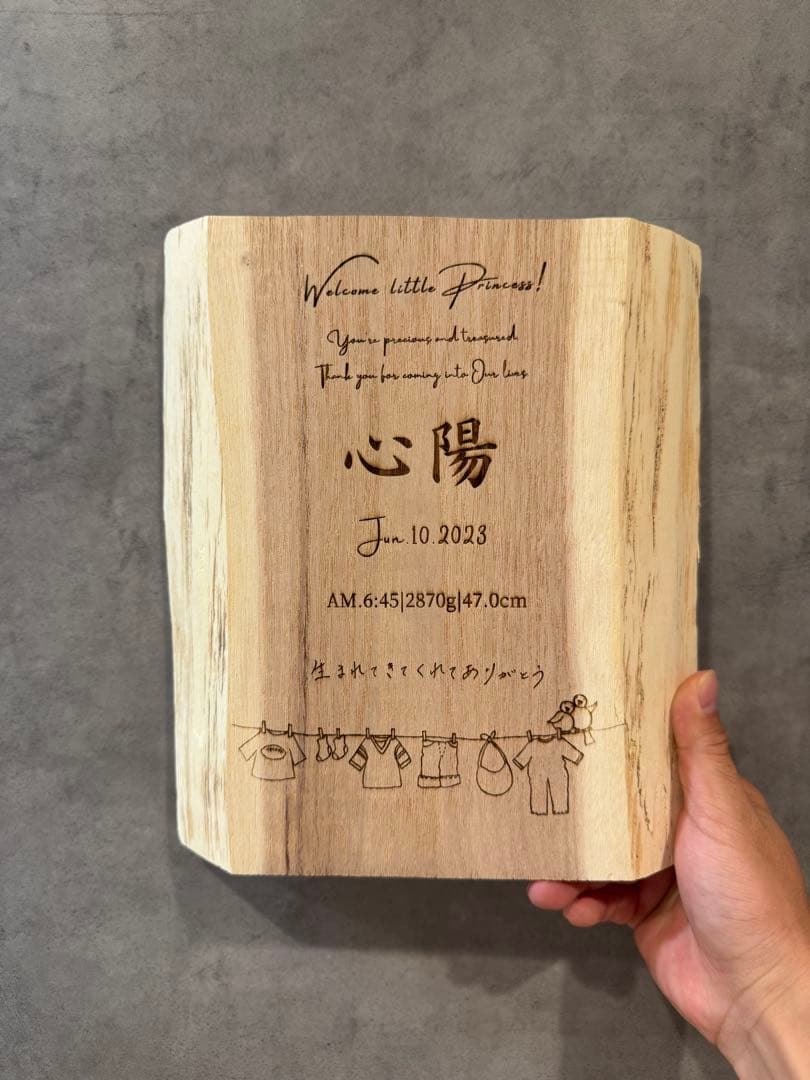 Welcome little Princess!
You're precious and treasured.
Thank you for coming into Our lives
心陽
Jun.10.2023
AM.6:45|2870g|47.0cm
生まれてきてくれてありがとう